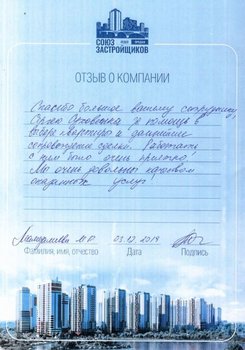 СОЮЗ
ЗАСТРОЙЩИКОВ
ОТЗЫВ О КОМПАНИИ
Спасибо большое вашему сотруднику
за помощь в
выборе квартиры и дальнейшее
сопровождение сделки. Работать
с ним было очень приятно.
Мы очень довольны качеством
оказанных услуг!
03.10.2019
Фамилия, имя, отчество Дата Подпись